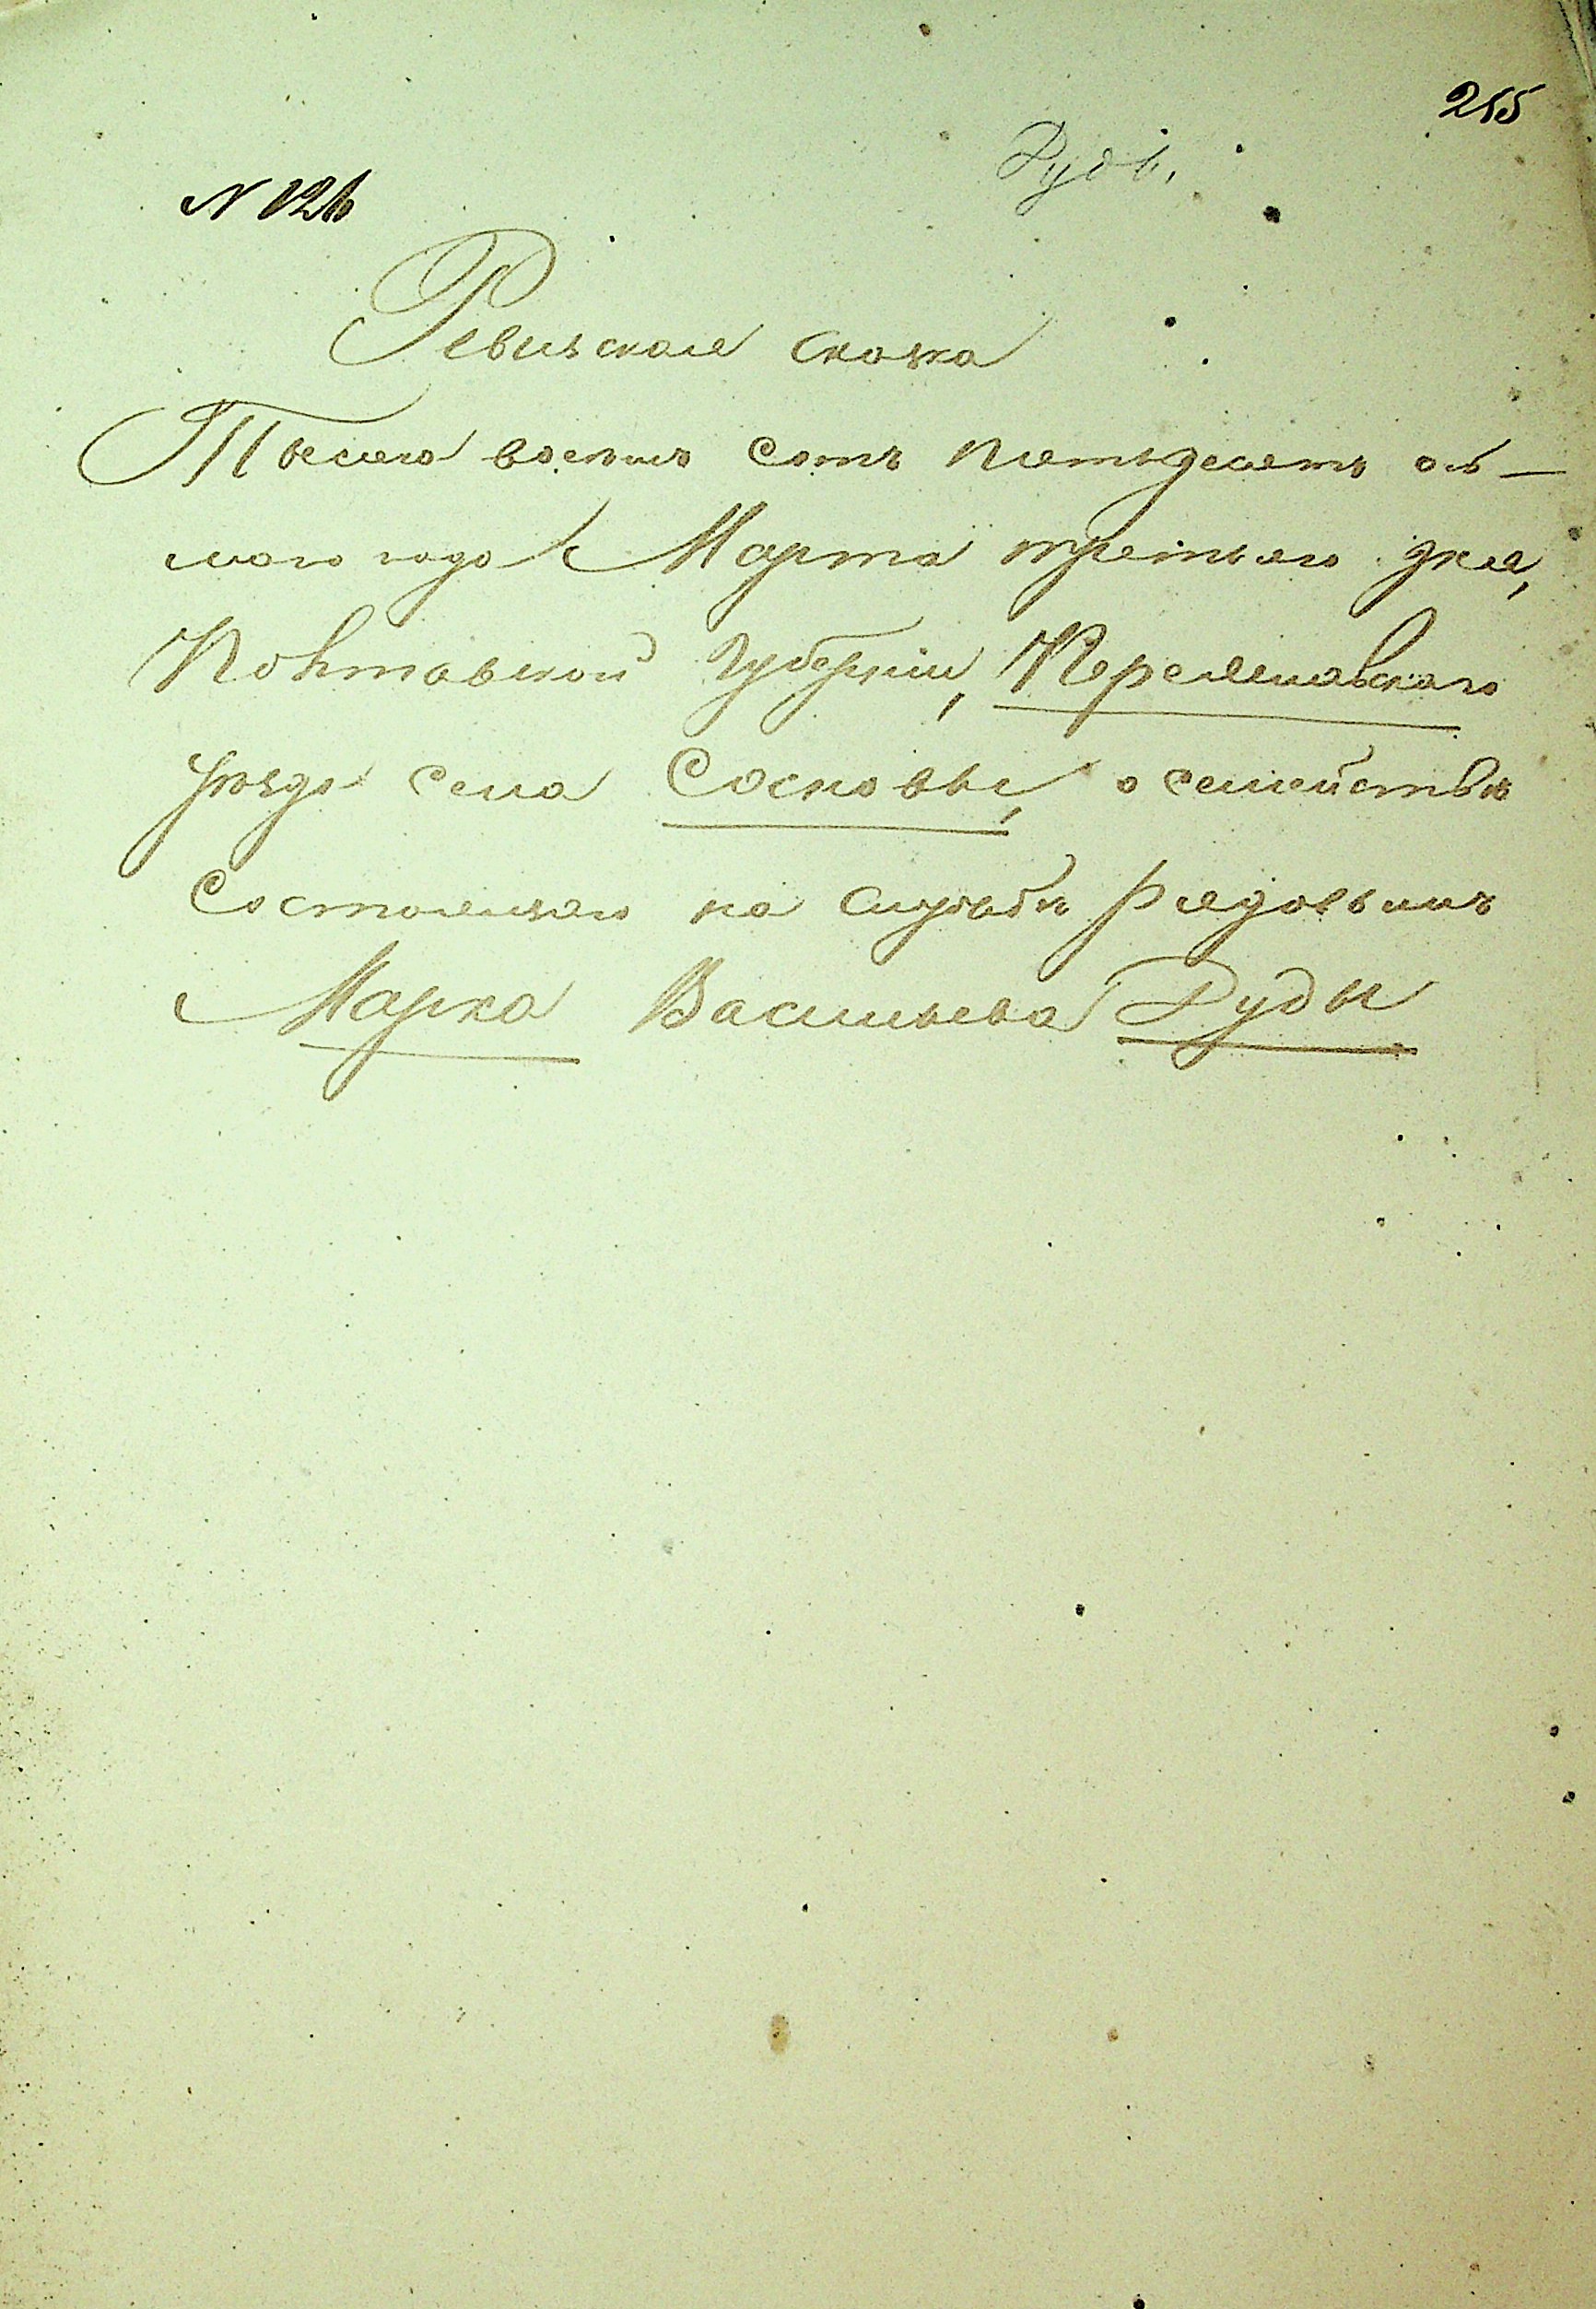 255
Рудь.
N 126
Ревизская сказка
Тысяча восемь сотъ пятьдесятъ ось-
маго года Марта третьяго дня,
Полтавской Губерніи, Переяславскаго
уѣзда села Сосновы, о семействѣ
Состоящаго на службѣ рядовымъ
Марка Васильева Рудя